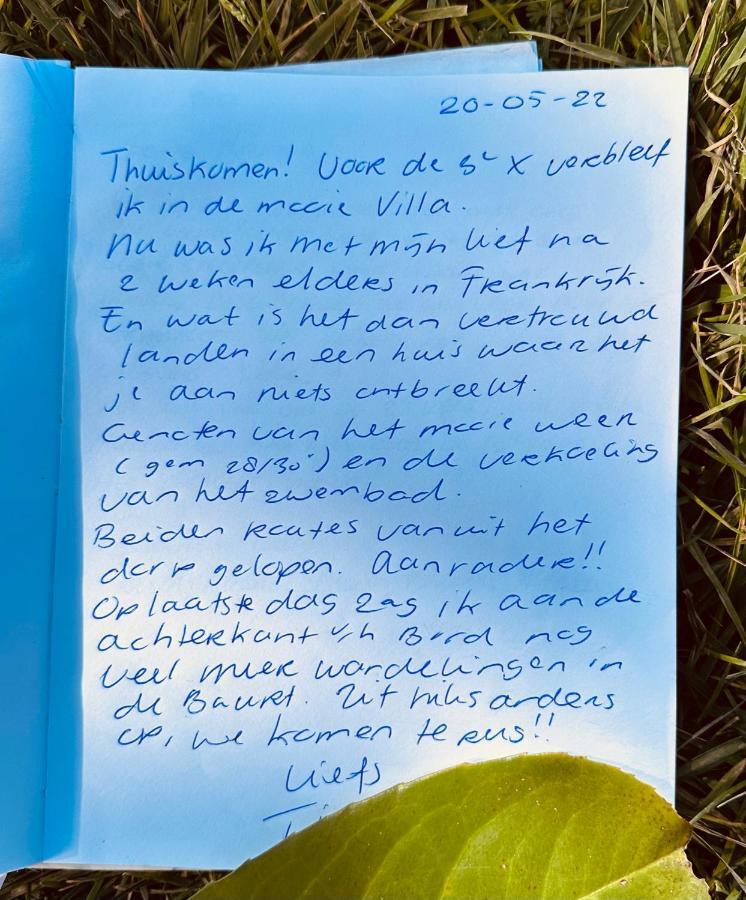 20-05-22
Thuiskomen! Voor de 3e X verbleef
ik in de mooie Villa.
Nu was ik met mijn lief na
2 weken elders in Frankrijk.
En wat is het dan vertrouwd
landen in een huis waar het
je aan niets ontbreekt.
Genoten van het mooie weer
(gem 28/30°) en de verkoeling
van het zwembad.
Beiden routes vanuit het
dorp gelopen. Aanrader!!
Op laatste dag zag ik aan de
achterkant v/h Bord nog
veel meer wandelingen in
de Buurt. Zit niks anders
op, we komen terug!!
Liefs